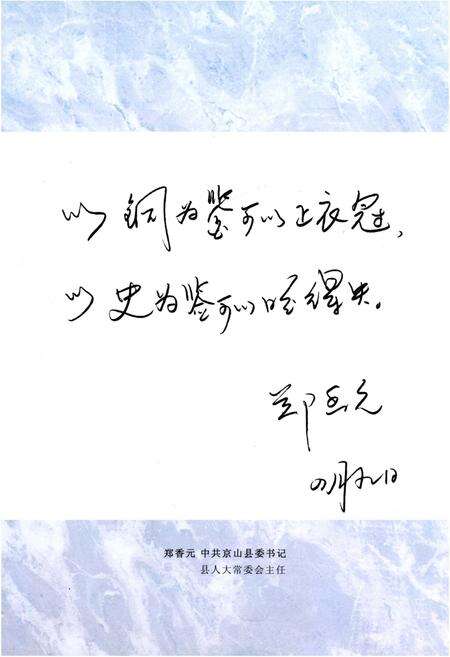 以铜为鉴可以正衣冠，
以史为鉴可以明得失。
郑香元
四月九日
郑香元 中共京山县委书记
县人大常委会主任